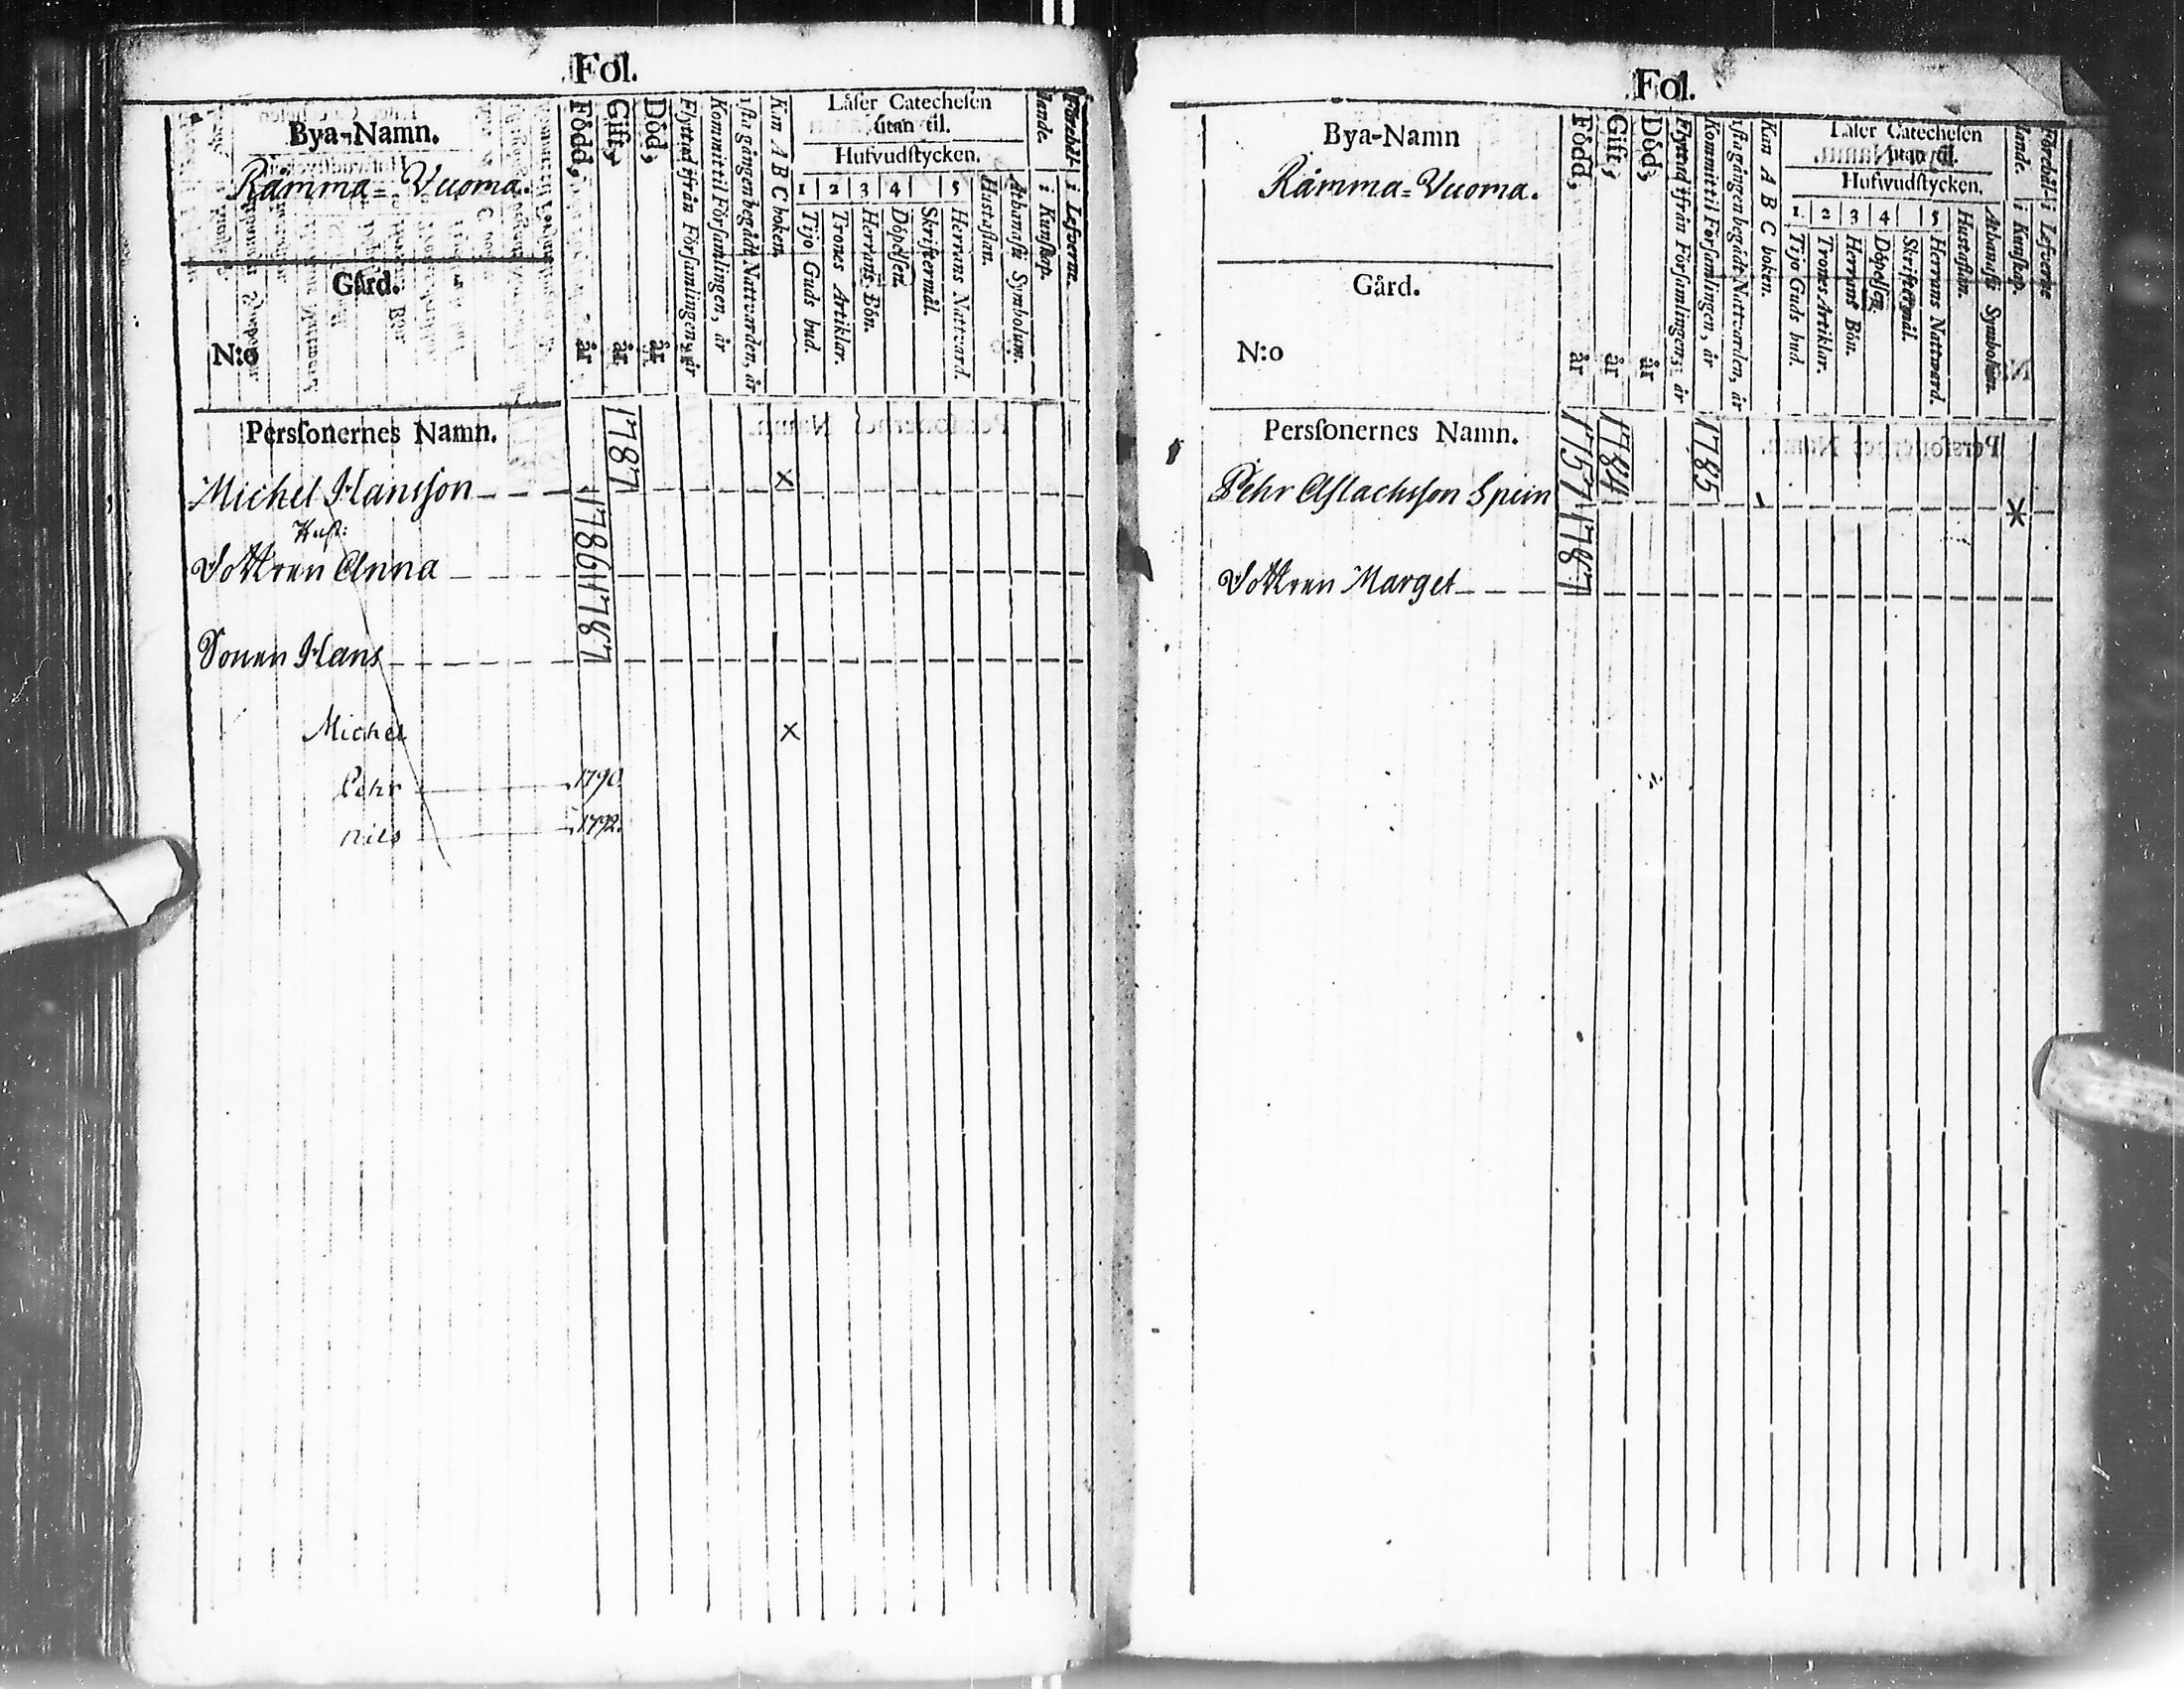 Fol.
Bya-Namn.
Råmma=Vuoma.
Gård.
N:o
Född, år
Gift, år
Död, år
Flyttad ifrån Församlingen, år
Kommit til Församlingen, år
1sta gången begådt Nattvarden, år
Kan A B C boken.
Läser Catechesen
utan til.
Hufvudstycken.
1 2 3 4 5
Tijo Guds bud.
Trones Artiklar.
Herrans Bön.
Döpelsen.
Skriftermål.
Herrans Nattvard.
Hustaflan.
Athanasii Symbolum.
Förehållande.
i Kunskap.
i Lefverne.
Perssonernes Namn.
Michel Hansson 1787 x
Hust:
Dottren Anna 1786
Sonen Hans 1787
Michel x
Pehr 1790.
Nils 1792.
Fol.
Bya-Namn
Råmma=Vuoma.
Gård.
N:o
Född, år
Gift, år
Död, år
Flyttad ifrån Församlingen, år
Kommit til Församlingen, år
1sta gången begådt Nattvarden, år
Kan A B C boken.
Läser Catechesen
utan til.
Hufwudstycken.
1. 2 3 4 5
Tijo Guds bud.
Trones Artiklar.
Herrans Bön.
Döpelsen.
Skriftermål.
Herrans Nattward.
Hustaflan.
Athanasii Symbolum.
Förehållande.
i Kunskap.
i Lefverne
Perssonernes Namn.
Pehr Aslachsson Spein 1757 1784 1785
Dottren Marget 1787